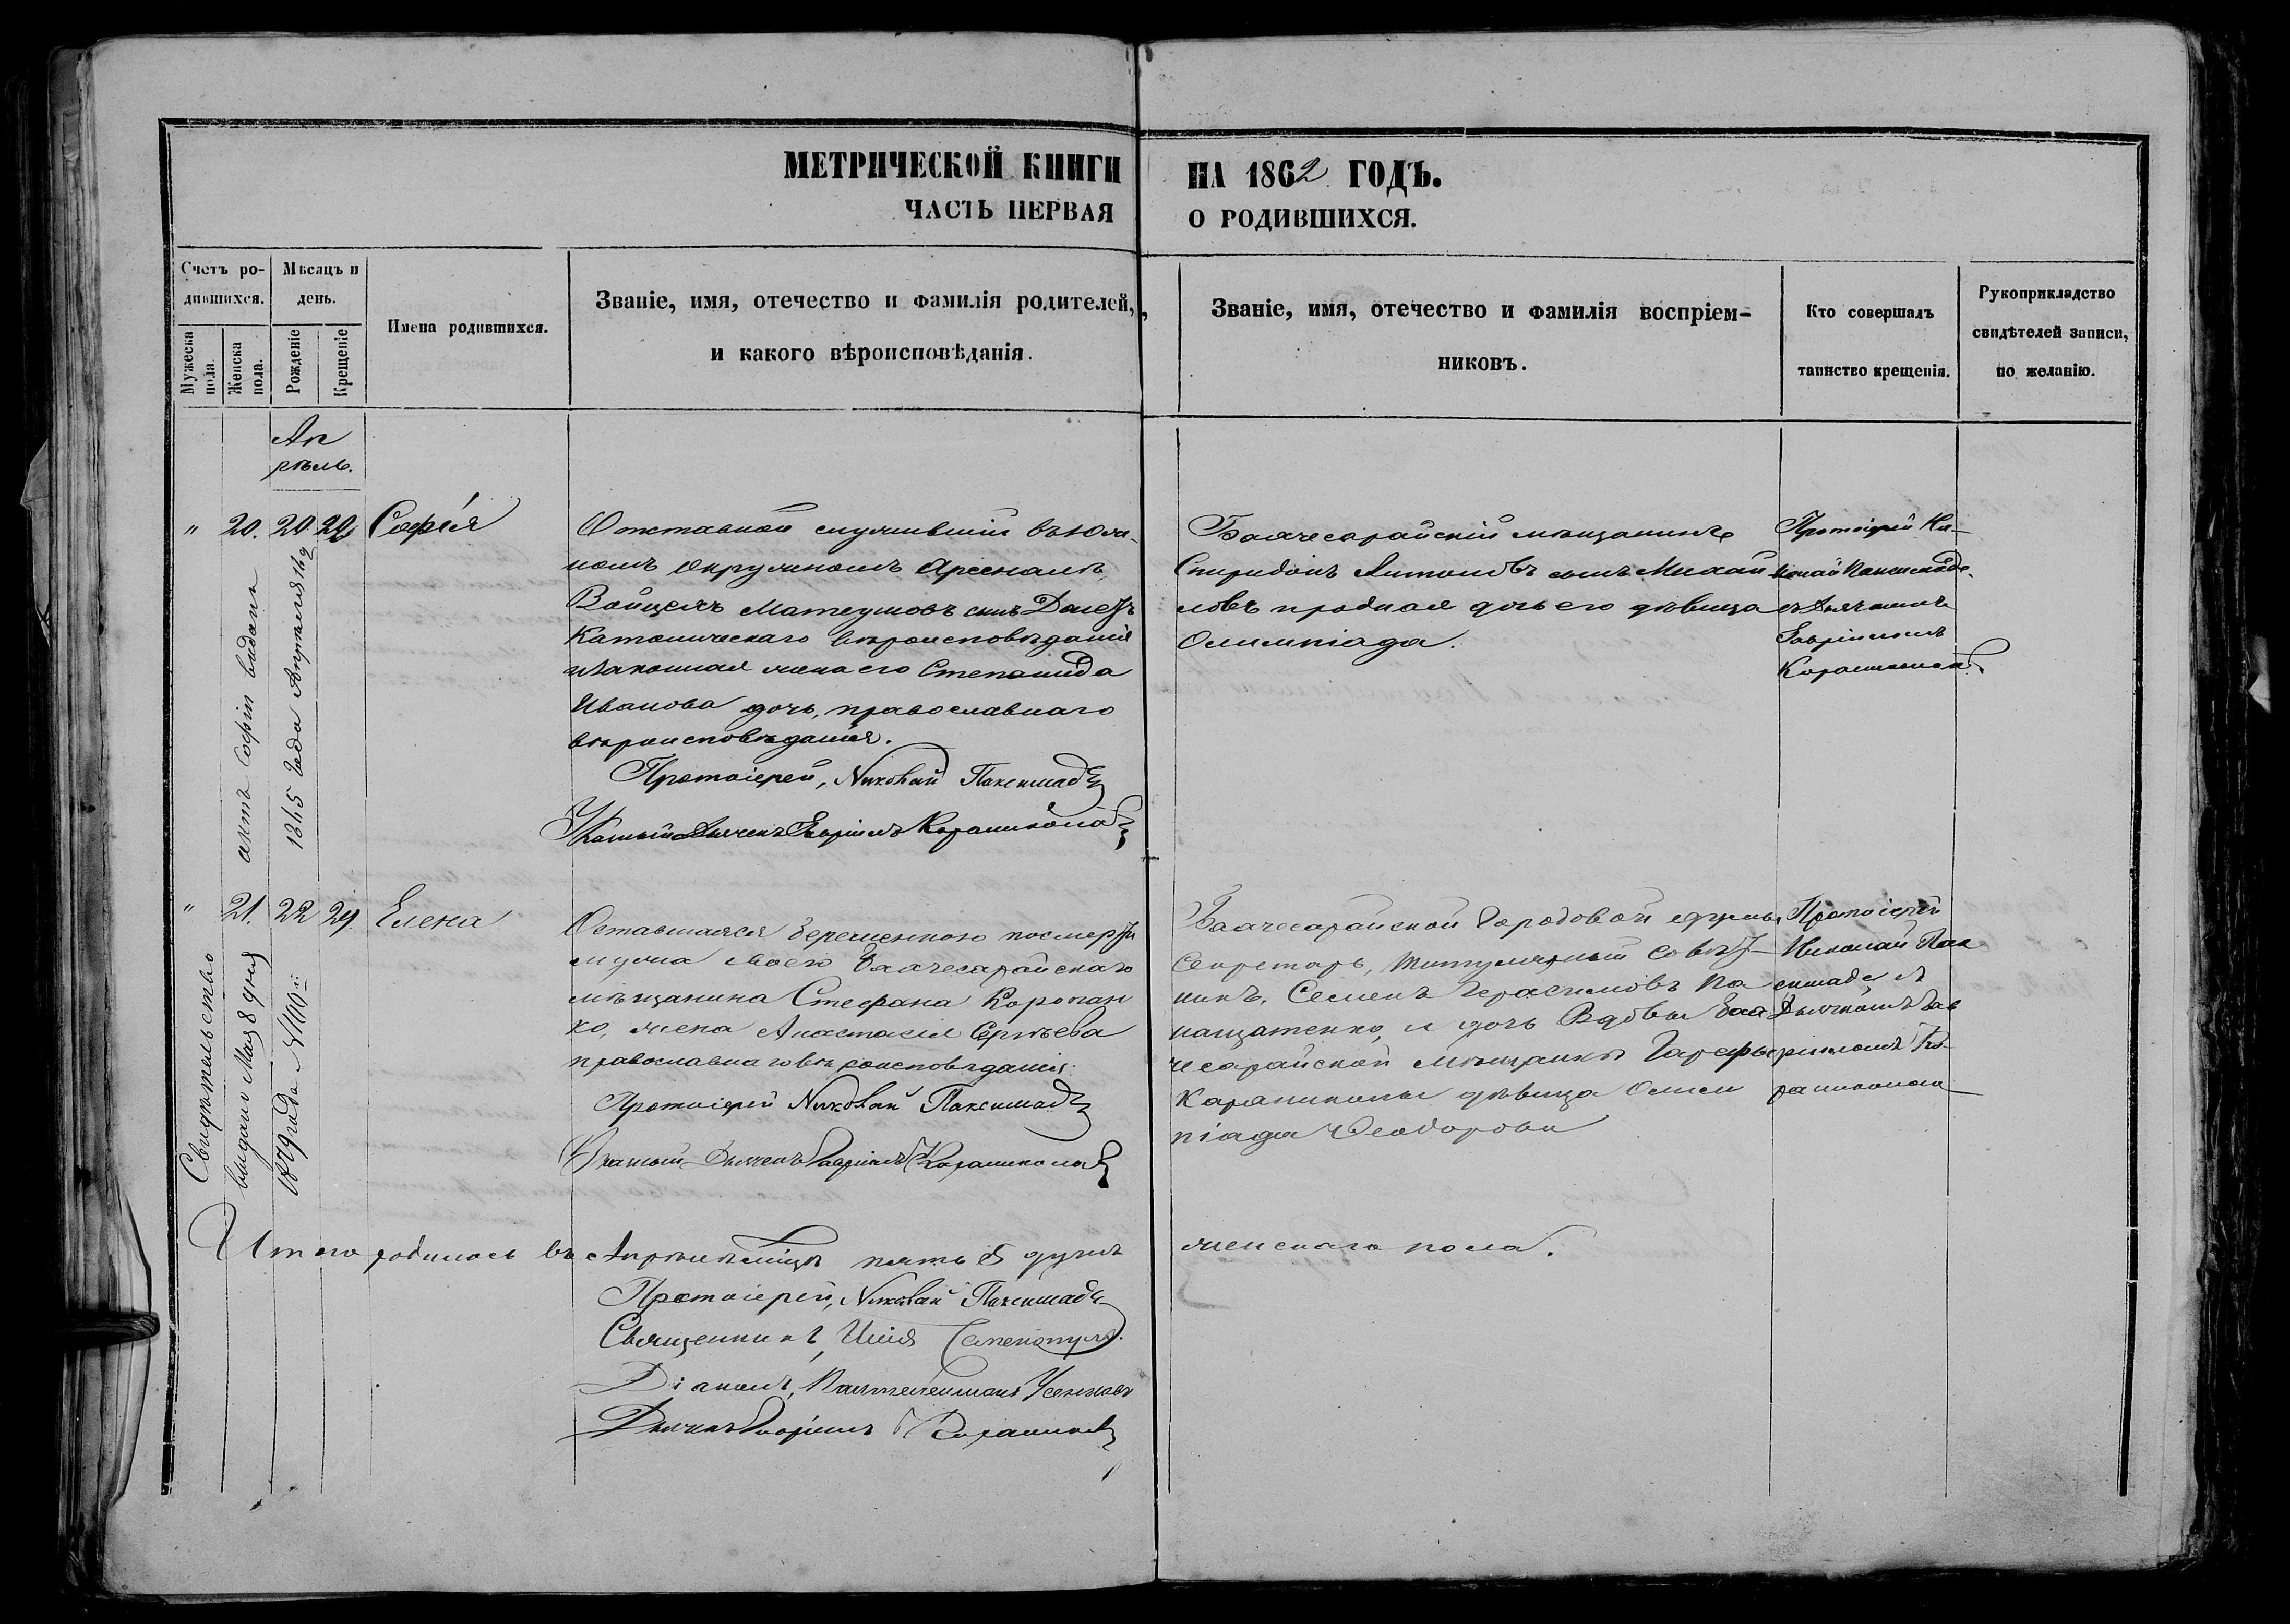 МЕТРИЧЕСКОЙ КНИГИ НА 1862 ГОДЪ.
ЧАСТЬ ПЕРВАЯ О РОДИВШИХСЯ.
Счетъ ро-
дившихся.
Мужеска
пола.
Женска
пола.
Мѣсяцъ и
день.
Рожденіе
Крещеніе
Имена родившихся.
Званіе, имя, отечество и фамилія родителей,
и какого вѣроисповѣданія.
Званіе, имя, отечество и фамилія воспріем-
никовъ.
Кто совершалъ
таинство крещенія.
Рукоприкладство
свидѣтелей записи,
по желанію.
Ап
рѣль.
" 20. 20 29 Софія
Отставной служившій въ Юж-
номъ Окружномъ Арсеналѣ,
Войцехъ Матеушовъ сынъ
Католическаго вѣроисповѣданія
и законная жена его Степанида
Иванова дочь, православнаго
вѣроисповѣданія.
Протоіерей, Николай Паксимадъ
Дьячекъ Гавріилъ Караникола
Бахчесарайскій мѣщанинъ
Спиридонъ Антоновъ сынъ Михай
ловъ и родная дочь его дѣвица
Олимпіада.
Протоіерей Ни-
колай Паксимаде
съ Дьячкомъ
Гавріиломъ
Караниколой.
актъ Софіи выданъ
1865 года Апрѣля 14
" 21. 22 29. Елена
Оставшаяся беременною по смерти
мужа своего Бахчесарайскаго
мѣщанина Стефана Коропан
ко, жена Анастасія Сергѣева
православнаго вѣроисповѣданія.
Протоіерей Николай Паксимадъ
Дьячекъ Гавріилъ Караникола
Бахчесарайской Городовой
Секретарь, Титулярный Совѣт-
никъ, Семенъ Герасимовъ Па
нащатенко, и дочь Вдовы Бах
чесарайской мѣщанки
Караниколы дѣвица Олим
піада Феодорова
Протоіерей
Николай Пак
симаде съ
Дьячкомъ Гав
ріиломъ Ка-
раниколою
Свидѣтельство
выдано Мая 8 дня
1879 года №110
Итого родилось въ Апрѣлѣ мѣсяцѣ пять 5 душъ женскаго пола.
Протоіерей, Николай Паксимадъ
Священникъ,
Діаконъ, Пантелеимонъ
Дьячекъ Гавріилъ Караникола